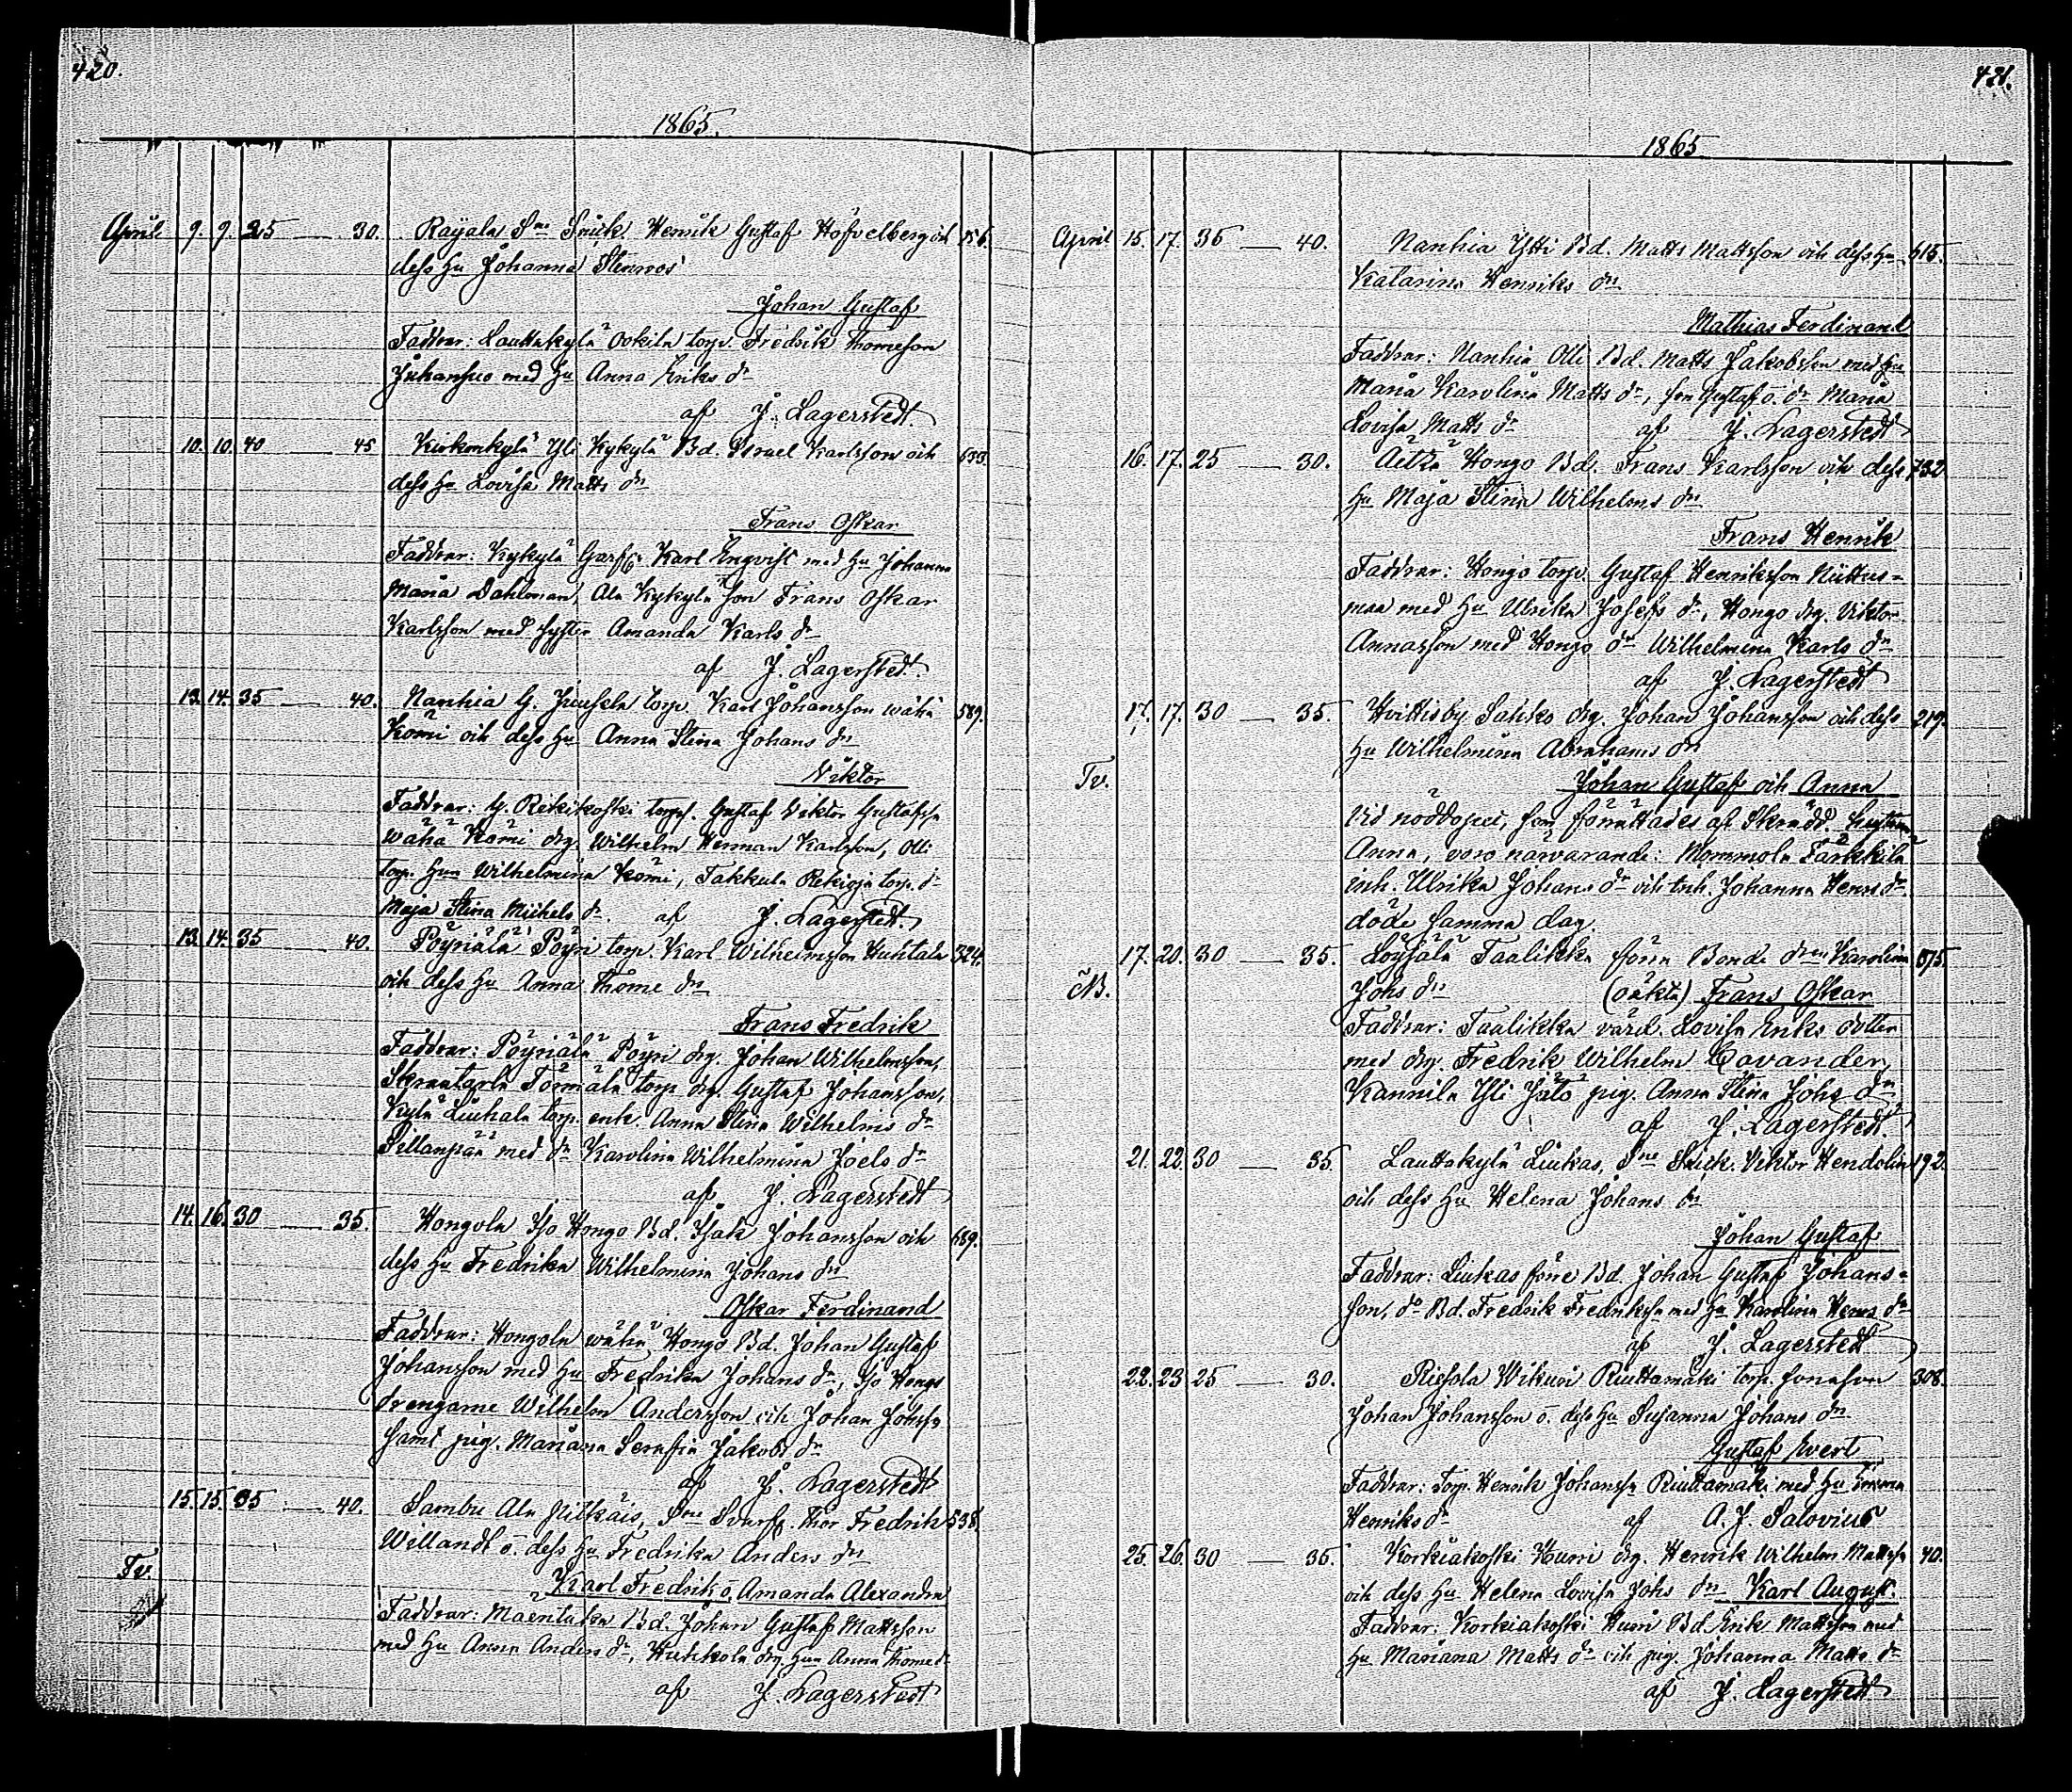 420.
1865.
April 9. 9. 25 — 30. Rajala S:ne Snick. Henrik Gustaf Hofvelberg och 156.
dess Hu Johanna Stenroos
Johan Gustaf
Faddrar: Lauttakylä torp. Fredrik Thomeson
Juhansuo med Hu Anna Eriks dr
af J. Lagerstedt.
10. 10. 40 45 Kirkonkylä Yli Kykylä Bd. Israel Karlsson och 633.
dess Hu Lovisa Matts dr
Frans Oskar
Faddrar: Kykylä Karl Engvist med Hu Johanna
Maria Dahlman, Ala Kykylä son Frans Oskar
Karlsson med syster Amanda Karls dr
af J. Lagerstedt.
13. 14. 35 — 40. Nanhia G. Junsela torp. Karl Johansson wähä 589.
Komi och dess Hu Anna Stina Johans dr
Viktor
Faddrar: G. Rekikoski torp. Gustaf Viktor Gustafss
wähä Komi drg. Wilhelm Herman Karlsson, Olli
torp. Hun Wilhelmina Komi, Takkula Rekioja torp. dr
Maja Stina Michels dr. af J. Lagerstedt.
13. 14. 35 — 40. Pöyriälä Pöyri torp. Karl Wilhelmsson Huhtala 324.
och dess Hu Anna Thome dr
Frans Fredrik
Faddrar: Pöyriälä Pöyri drg. Johan Wilhelmsson,
Skraatarla Törmälä torp. drg. Gustaf Johansson,
Kylä Liuhala torp. enk. Anna Stina Wilhelms dr
Sillanpää med dr Karolina Wilhelmina Joels dr
af J. Lagerstedt
14. 16. 30 — 35. Hongola Iso Hongo Bd. Isak Johansson och 689.
dess Hu Fredrika Wilhelmina Johans dr
Oskar Ferdinand
Faddrar: Hongola wähä Hongo Bd. Johan Gustaf
Johansson med Hu Fredrika Johans dr, Iso Hongo
drengarne Wilhelm Andersson och Johan Johss
samt pig. Mariana Serafia Jakobs dr
af J. Lagerstedt
15. 15. 35 — 40. Sambu Ala Pitkäis, S:ne Svarf. Thor Fredrik 538.
Willandt o. dess Hu Fredrika Anders dr
Tv. Karl Fredrik o. Amanda Alexandra
Faddrar: Mäentaka Bd. Johan Gustaf Mattsson
med Hu Anna Anders dr, Huhkola drg. Hun Anna Thome dr
af J. Lagerstedt
421.
1865
April 15. 17. 36 — 40. Nanhia Ytti Bd. Matts Mattsson och dess Hu 615.
Katarina Henriks dr
Mathias Ferdinand
Faddrar: Nanhia Olli Bd. Matts Jakobsson med Hu
Maria Karolina Matts dr, son Gustaf o. dr Maria
Lovisa Matts dr af J. Lagerstedt
16. 17. 25 — 30. Äetsä Hongo Bd. Frans Karlsson och dess 732
Hu Maja Stina Wilhelms dr
Frans Henrik
Faddrar: Hongo torp. Gustaf Henriksson Niittus-
maa med Hu Ulrika Josefs dr, Hongo drg. Viktor
Annasson med Hongo dr Wilhelmina Karls dr
af J. Lagerstedt
17. 17. 30 — 35. Hvittisby Sahko drg. Johan Johansson och dess 219.
Hu Wilhelmina Abrahams dr
Tv. Johan Gustaf och Anna
Vid nöddopet, som förrättades af Skrädd. hustrun
Anna, voro närvarande: Mommola Tärkkilä
inh. Ulrika Johans dr och Inh. Johanna Henrs dr.
döde samma dag.
17. 20. 30 — 35. Loysälä Taalikka förra Bonde dren Karolina 575.
NB. Johs dr (oäkta) Frans Oskar
Faddrar: Taalikka värd. Lovisa Eriks dotter
med drg. Fredrik Wilhelm Cavander,
Kannila Yli Jäto pig. Anna Stina Johs dr
af J. Lagerstedt.
21. 22. 30 — 35. Lauttakylä Liukas, S:ne Snick. Viktor Hendolin 192.
och dess Hu Helena Johans dr
Johan Gustaf
Faddrar: Liukas förre Bd. Johan Gustaf Johans-
son, do Bd. Fredrik Fredrikss med Hu Karolina Henrs dr
af J. Lagerstedt
22. 23 25 — 30. Riesola Wikuri Riuttamäki torp. sonason 308.
Johan Johansson o. dess Hu Susanna Johans dr
Gustaf Evert
Faddrar: Torp. Henrik Johanss Riuttamäki med Hu Emma
Henriks dr af A. J. Salovius
25. 26. 30 — 35. Korkiakoski Hurri drg. Henrik Wilhelm Mattss 40.
och dess Hu Helena Lovisa Johs dr Karl August.
Faddrar: Korkiakoski Hurri Bd. Erik Mattsson med
Hu Mariana Matts dr och pig. Johanna Matts dr
af J. Lagerstedt